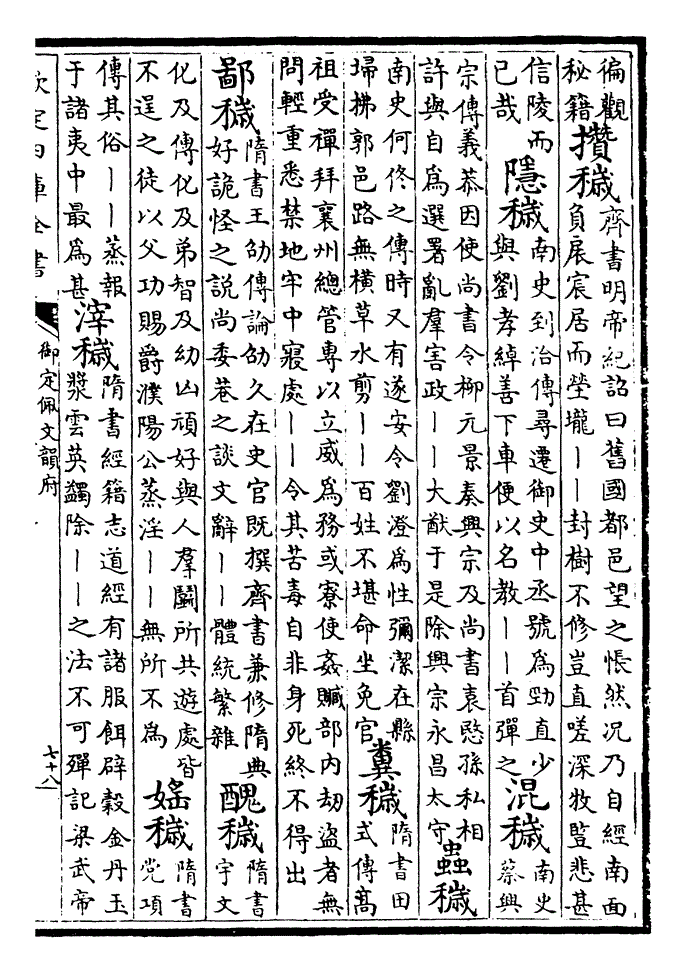 徧觀
秘籍
攢穢
齊書明帝紀詔曰舊國都邑望之悵然況乃自經南面
負扆宸居而塋壠——封樹不修豈直嗟深牧豎悲甚
信陵而
已哉
隱穢
南史到洽傳尋遷御史中丞號為勁直少
與劉孝綽善下車便以名教——首彈之
混穢
南史
蔡興
宗傳義恭因使尚書令柳元景奏興宗及尚書袁愍孫私相
許與自為選署亂羣害政——大猷于是除興宗永昌太守
蟲穢
南史何佟之傳時又有遂安令劉澄為性彌潔在縣
埽拂郭邑路無橫草水剪——百姓不堪命坐免官
糞穢
隋書田
式傳髙
祖受禪拜襄州總管專以立威為務或寮使姦贓部内劫盜者無
問輕重悉禁地牢中寢處——令其苦毒自非身死終不得出
鄙穢
隋書王劭傳論劭久在史官既撰齊書兼修隋典
好詭怪之說尚委巷之談文辭——體統繁雜
醜穢
隋書
宇文
化及傳化及弟智及幼凶頑好與人羣鬬所共遊處皆
不逞之徒以父功賜爵濮陽公蒸淫——無所不為
婬穢
隋書
党項
傳其俗——蒸報
于諸夷中最為甚
滓穢
隋書經籍志道經有諸服餌辟穀金丹玉
漿雲英蠲除——之法不可殫記梁武帝
欽定四庫全書
御定佩文韻府
七十八